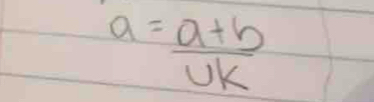 a = a+b
UK